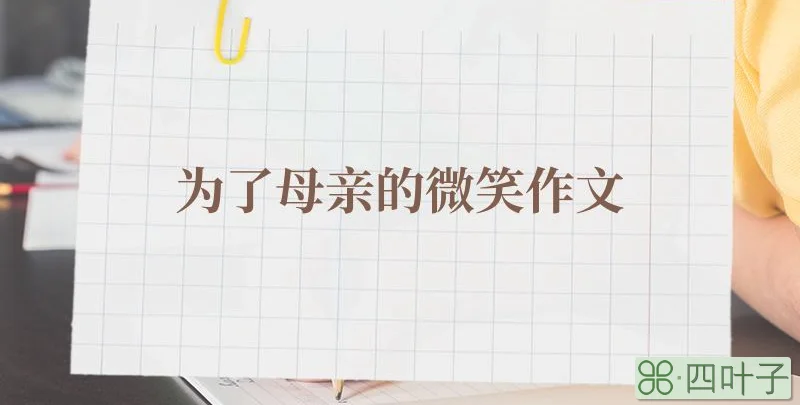 为了母亲的微笑作文
四叶子